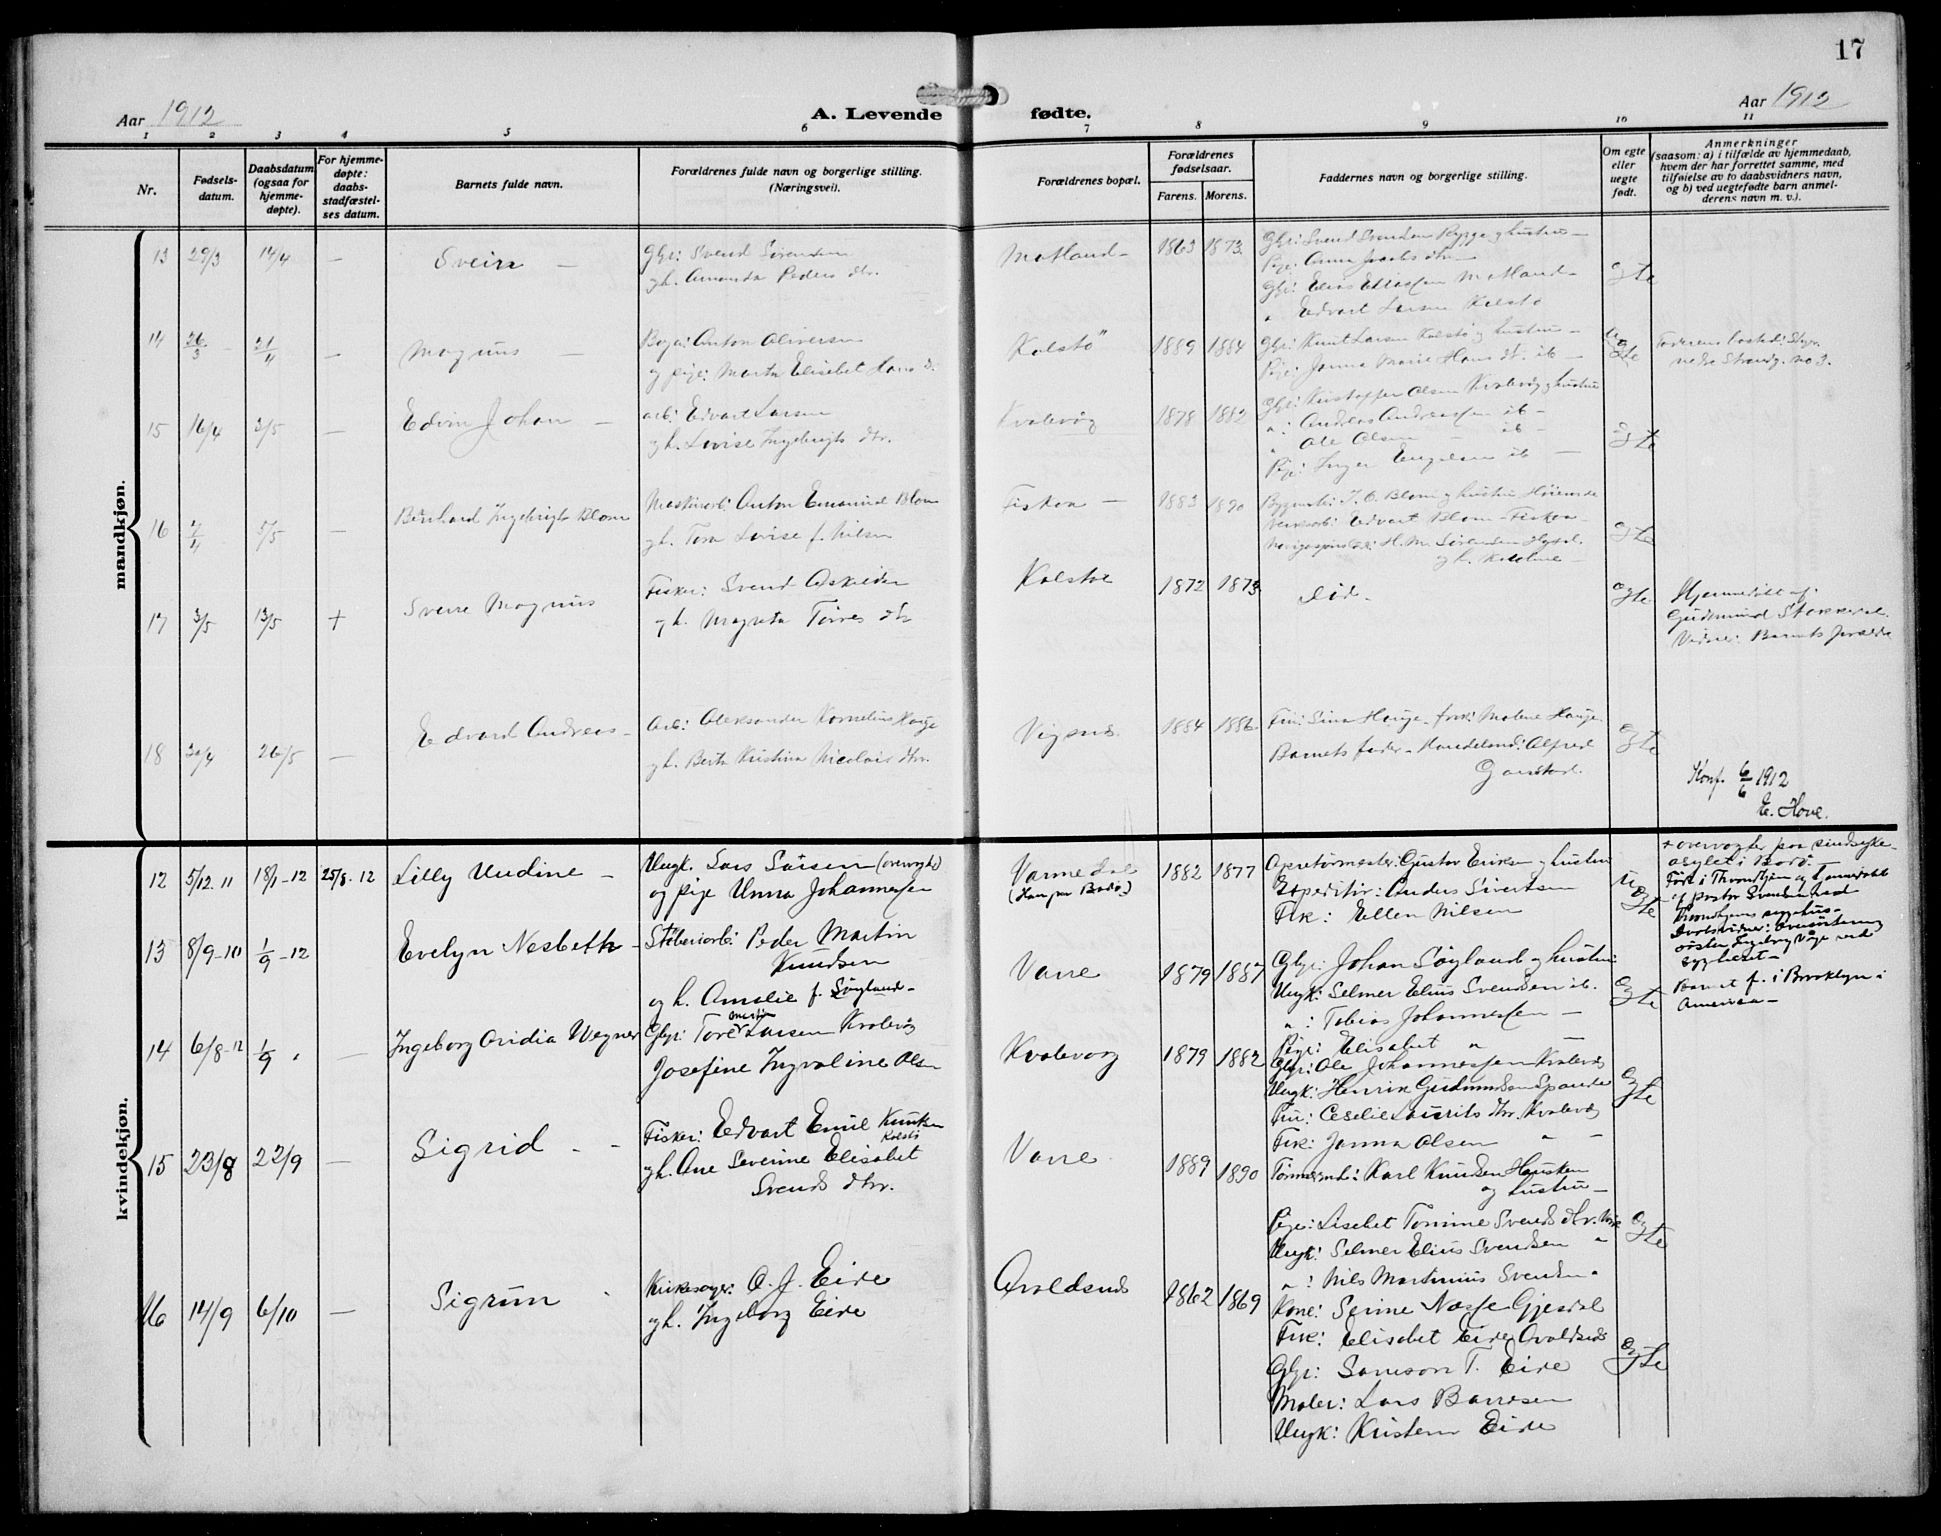 17
Aar 1912
A. Levende fødte.
Aar 1912
1 2 3 4 5 6 7 8 9 10 11
Nr.
Fødsels-
datum.
Daabsdatum
(ogsaa for
hjemme-
døpte).
For hjemme-
døpte:
daabs-
stadfæstel-
ses datum.
Barnets fulde navn.
Forældrenes fulde navn og borgerlige stilling.
(Næringsvei).
Forældrenes bopæl.
Forældrenes
fødselsaar.
Farens. Morens.
Faddernes navn og borgerlige stilling.
Om egte
eller
uegte
født.
Anmerkninger
(saasom: a) i tilfælde av hjemmedaab,
hvem der har forrettet samme, med
tilføielse av to daabsvidners navn,
og b) ved uegtefødte barn anmel-
derens navn m. v.).
mandkjøn.
13 29/3 14/4 — Svein —
Gbr: Svend Svendsen
gh. Amanda Peders dtr.
Matland - 1863 1873
Gbr: Svend Svendsen Rygge g hustru —
Pige: Anna Jacobs dtr —
Gbr: Elias Eliassen Matland -
" Edvart Larsen Kolstø
egte
14 26/3 21/4 — Magnus —
Anton Oliversen
og pige: Marta Elisabet Hans d.
Kolstö 1889 1884
Gbr: Knut Larsen Kolstø g hustru —
Pige: Janna Marie Hans dtr. ib —
uegte
Faderens bosted: Stav.
nedre Strandg. no 3.
15 16/4 3/5 — Edvin Johan —
arb: Edvart Larsen
gh. Lovise Ingebrigts dtr.
Kvalevåg 1878 1882
Gbr: Kristoffer Olsen Kvalevåg g hustru
" : Andreas Andreassen ib —
" Ole Olsen — ib —
Pige: Inger Engelsen ib —
egte
16 7/4 5/5 — Bernhard Ingebrigt Blom
Maskinarb: Anton Emanuel Blom
gh. Tora Lovise f. Nilsen
Fiskaa — 1883 1890
J. C. Blom g hustru
Edvart Blom Fiskaa -
H. M. Sørensen
gh. Karoline —
egte
17 3/5 13/5 + Sverre Magnus
Fisker: Svend Askelsen
gh. Magreta Torres dtr
Kolstø 1872 1873
død.
egte
Hjemmedøbt af.
Gudmund Stokkedal
Vidne: Barnets forældre
18 30/4 26/5 — Edvard Andreas -
Arb: Aleksander Kornelius Hauge
gh. Berta Kristina Nicolais dtr.
Vigsnes 1884 1886
Fru: Sina Hauge - frk: Malene Hauge
Barnets fader - Handelsmd: Alfred
Gaustad.
egte
Konf. 6/6 1912
E. Hove.
kvindekjøn.
12 5/12 11 18/1 - 12 25/8 - 12 Lilly Undine —
Ungk. Lars Larsen (overvogter)
og pige Unna Johannessen
Varnedal
(Han paa Bodø)
1882 1877
Gustav Eriksen g hustru
Expeditør: Anders Sivertsen
Frk: Ellen Nilsen
uegte
+ overvogter paa sindsyke-
asylet i Bodø. —
Født i Throndhjem og hjemmedøbt
af pastor Svendsen ved
Throndhjems sygehus -
søster Ingeborg Våge ved
sygehuset —
13 8/9 - 10 1/9 - 12 Evelyn Nesbeth -
Støberiarb: Peder Martin
Knudsen
og h. Amalie f. Søyland -
Vare 1879 1887
Gbr: Johan Søyland g hustru
Ungk: Selmer Elius Svendsen ib.
" : Tobias Johannessen —
Pige: Elisabet " —
egte
Barnet f. i Brooklyn i
Amerika —
14 6/8 - 12 1/9 " — Ingeborg Ovidia Wegner
Gbr: Tore Martin Larsen Kvalevåg
Josefine Ingvaline Olsen
Kvalevåg 1879 1882
Gbr: Ole Johannessen Kvalevåg
Ungk: Henrik Gudmundsen Spanne
Fru: Ceselie Laurits dtr. Kvalevåg
Frk: Janna Olsen " —
egte
15 23/8 22/9 — Sigrid -
Fisker: Edvart Emil Knutsen
Kolstø
gh. Ane Severine Elisabet
Svends dtr.
Vare 1889 1890
Tømmermd: Karl Knudsen Hausken
og hustru —
Pige: Lisebet Tomine Svends dtr. Vare
Ungk: Selmer Elius Svendsen "
" : Nils Martinius Svendsen "
egte
16 14/9 6/10 — Sigrun
Kirkesanger: O. J. Eide
gh. Ingeborg Eide
Avaldsnes 1862 1869
Kone: Serine Næsse Gjesdal
Frk: Elisabet Eide Avaldsnes
Gbr: Samson T. Eide
Maler: Lars Bardsen
Ungk: Kristen Eide
egte